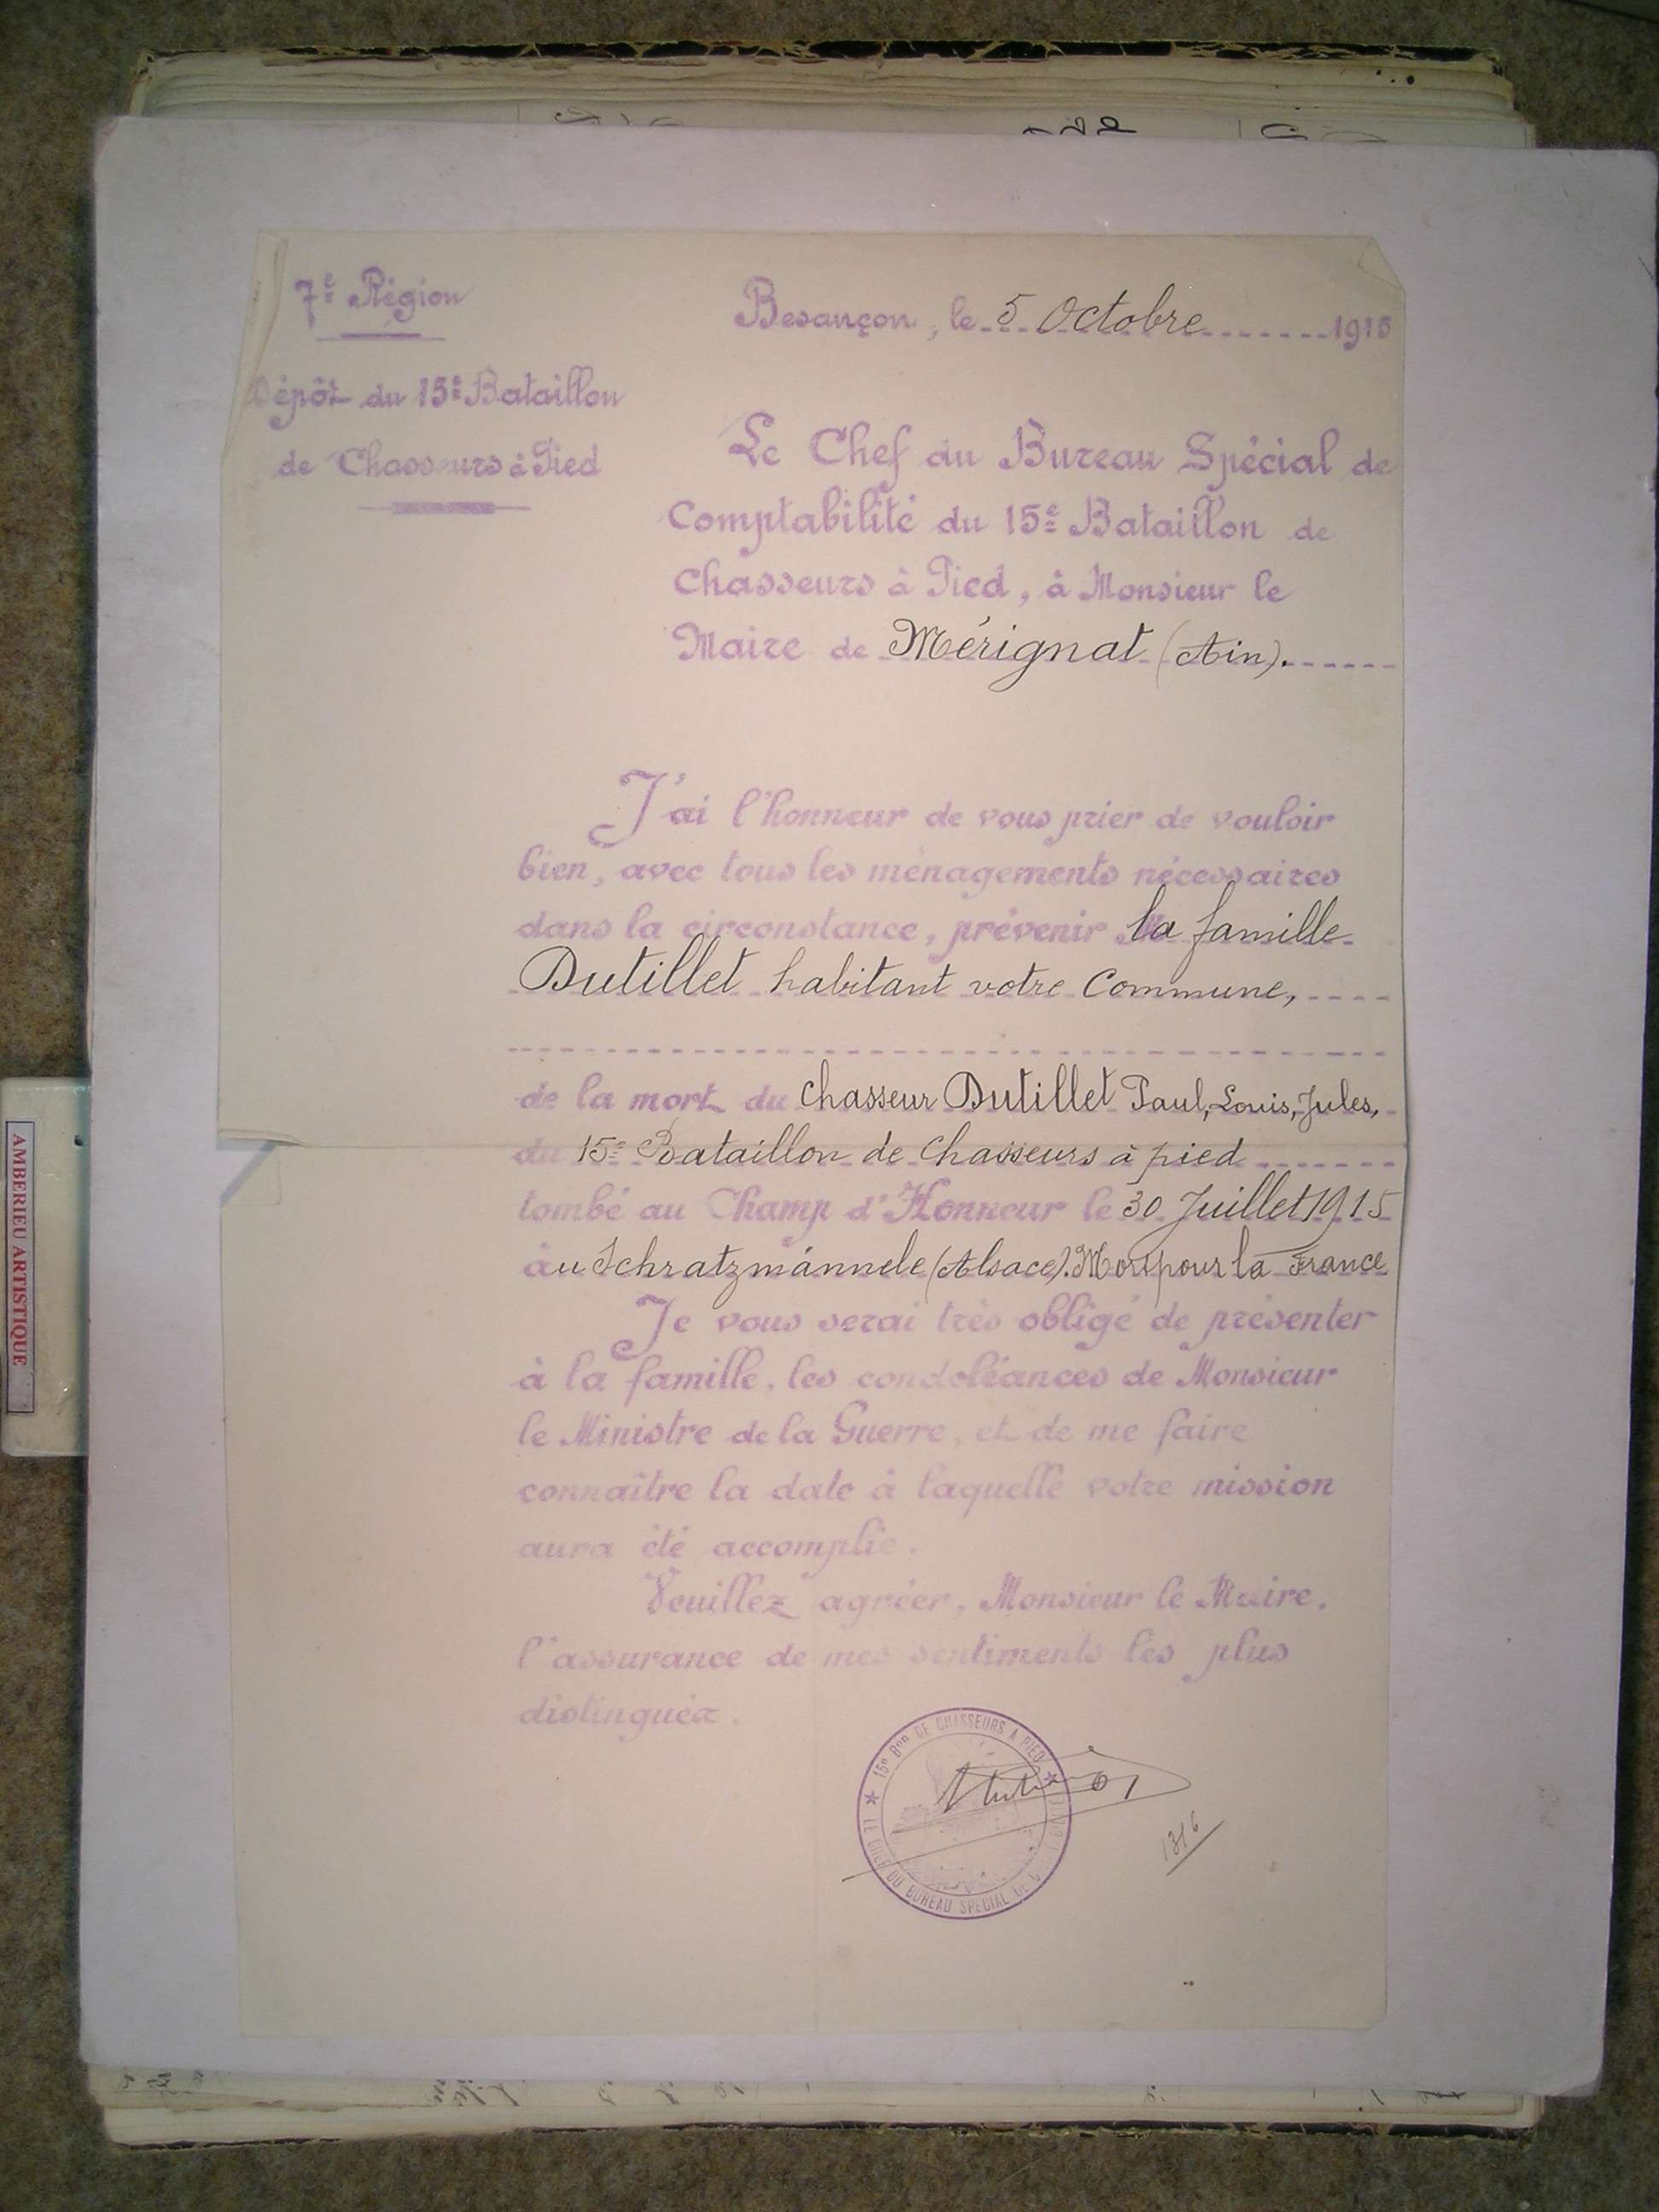 7e Région
Besançon, le 5 Octobre 1915
Dépôt du 15e Bataillon
de Chasseurs à Pied
Le Chef du Bureau Spécial de
Comptabilité du 15e Bataillon de
Chasseurs à Pied, à Monsieur le
Maire de Mérignat (Ain).
J'ai l'honneur de vous prier de vouloir
bien, avec tous les ménagements nécessaires
dans la circonstance, prévenir la famille
Dutillet habitant votre Commune,
de la mort du Chasseur Dutillet Paul, Louis, Jules,
du 15e Bataillon de Chasseurs à pied
tombé au Champ d'Honneur le 30 Juillet 1915
au Schratzmännele (Alsace). Mort pour la France
Je vous serai très obligé de présenter
à la famille, les condoléances de Monsieur
le Ministre de la Guerre, et de me faire
connaître la date à laquelle votre mission
aura été accomplie.
Veuillez agréer, Monsieur le Maire,
l'assurance de mes sentiments les plus
distingués.
15e Bon DE CHASSEURS A PIED
LE CHEF DU BUREAU SPECIAL DE
1316
AMBERIEU ARTISTIQUE